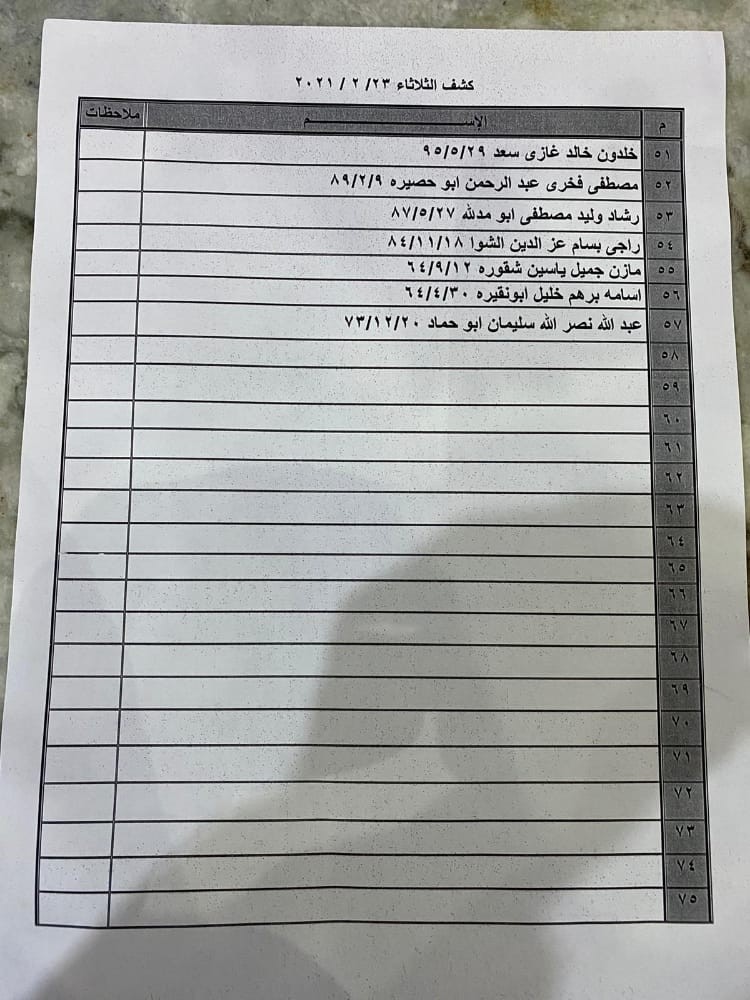 كشف الثلاثاء ٢٣/ ٢ / ٢٠٢١
م الإســـــــــــم ملاحظات
٥١ خلدون خالد غازى سعد ٩٥/٥/٢٩
٥٢ مصطفى فخرى عبد الرحمن ابو حصيره ٨٩/٢/٩
٥٣ رشاد وليد مصطفى ابو مدلله ٨٧/٥/٢٧
٥٤ راجي بسام عز الدين الشوا ٨٤/١١/١٨
٥٥ مازن جميل ياسين شقوره ٦٤/٩/١٢
٥٦ اسامه برهم خليل ابونقيره ٦٤/٤/٣٠
٥٧ عبد الله نصر الله سليمان ابو حماد ٧٣/١٢/٢٠
٥٨
٥٩
٦٠
٦١
٦٢
٦٣
٦٤
٦٥
٦٦
٦٧
٦٨
٦٩
٧٠
٧١
٧٢
٧٣
٧٤
٧٥